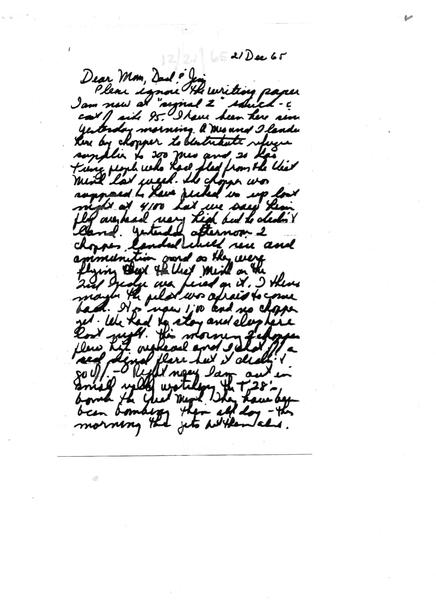 12/21/65 21 Dec 65
Dear Mom, Dad & Jim
Please ignore the writing paper
I am now at "signal 2" ranch - c
east of site 95. I have been here since
yesterday morning. A Meo and I landed
here by chopper to distribute refugee
supplies to 300 Meo and 20 Lao
Theung people who had fled from the Viet
Minh last week. The chopper was
supposed to have picked us up last
night at 4:00 but we saw him
fly overhead very high but he didn't
land. Yesterday afternoon 2
choppers landed with rice and
ammunition and as they were
flying out the Viet Minh on the
2nd ridge was fired on it. I think
maybe the pilot was afraid to come
back. It is now 1:00 and no chopper
yet. We had to stay and sleep here
last night. This morning a chopper
flew hi overhead and I shot off a
red signal flare but it didn't
go off. - Right now I am out in
small valley watching the T-28's
bomb the Viet Minh. They have
been bombing them all day - this
morning the jets hit them also.